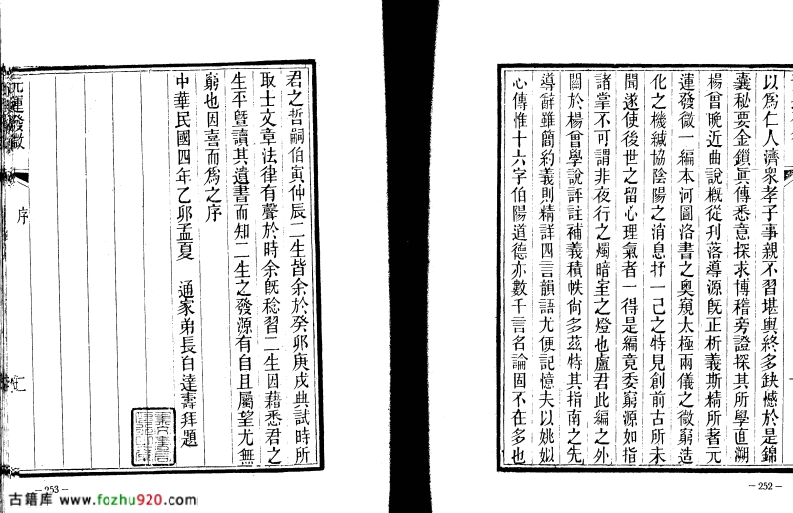 以爲仁人濟衆孝子事親不習堪輿終多缺憾於是錦
囊秘要金鎖眞傳悉意探求博稽旁證探其所學直溯
楊曾晚近曲說概從刋落導源旣正析義斯精所著元
運發微一編本河圖洛書之奥窺太極兩儀之微窮造
化之機緘協陰陽之消息抒一己之特見創前古所未
聞遂使後世之留心理氣者一得是編竟委窮源如指
諸掌不可謂非夜行之燭暗室之燈也盧君此編之外
關於楊曾學說詳註補義積帙尙多茲特其指南之先
導辭雖簡約義則精詳四言韻語尤便記憶夫以姚姒
心傳惟十六字伯陽道德亦數千言名論固不在多也
— 252 —
君之哲嗣伯寅仲辰二生皆余於癸卯庚戌典試時所
取士文章法律有聲於時余旣稔習二生因藉悉君之
生平曁讀其遺書而知二生之發源有自且屬望尤無
窮也因喜而爲之序
中華民國四年乙卯孟夏　通家弟長白達壽拜題
元運發微
序
— 253 —
古籍库 www.fozhu920.com